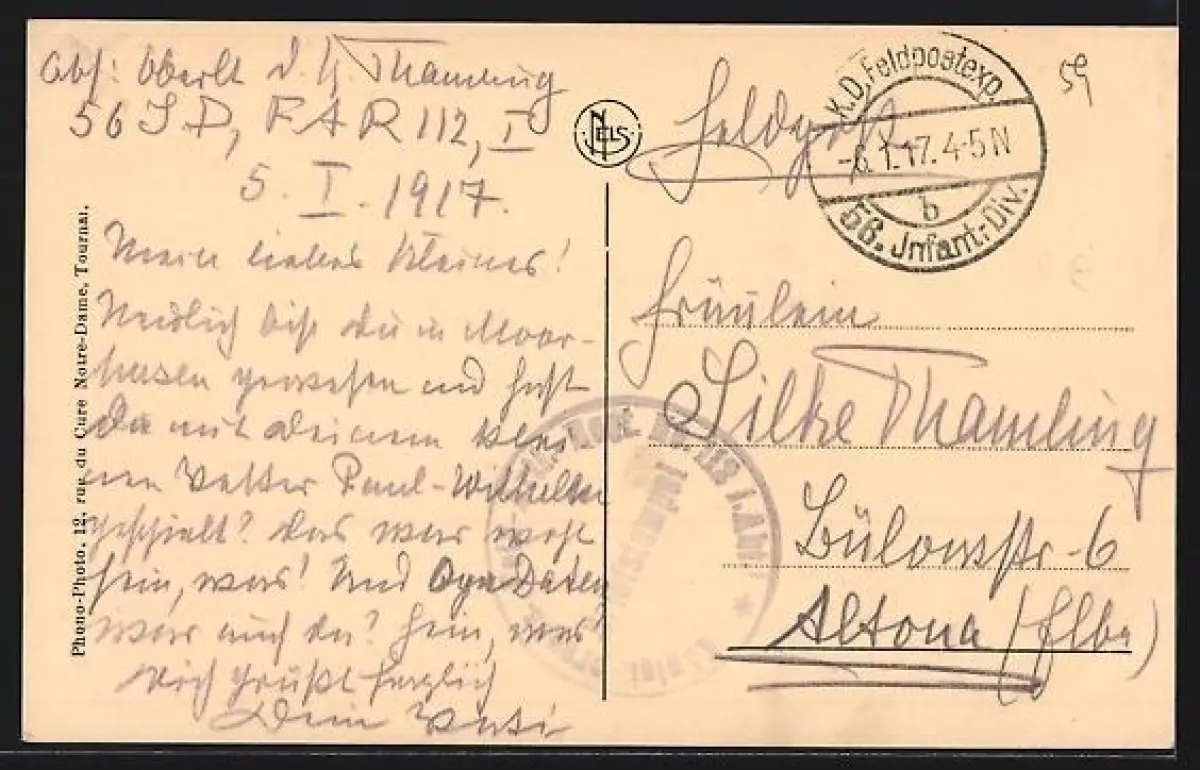 Abs: Oberlt d. R. Thamling
56 I D, F A R 112, I
5. I. 1917.
Mein liebes Kleines!
Neulich bist du in Moor-
husen gewesen und hast
du mit deinem klei
nen Vetter Paul-Wilhelm
gespielt? das war wohl
fein, was! Und Opa Daten
war auch da? fein, was!
Dich grüßt herzlich
Dein Vati
Phono-Photo, 12, rue du Curé Notre-Dame, Tournai.
NELS
Feldpost
K.D. Feldpostexp.
-6.1.17. 4-5 N
b
56. Infant.-Div.
59
Fräulein
Silke Thamling
Bülowstr-6
Altona (Elbe)
Nr. 112 I. Abt. *